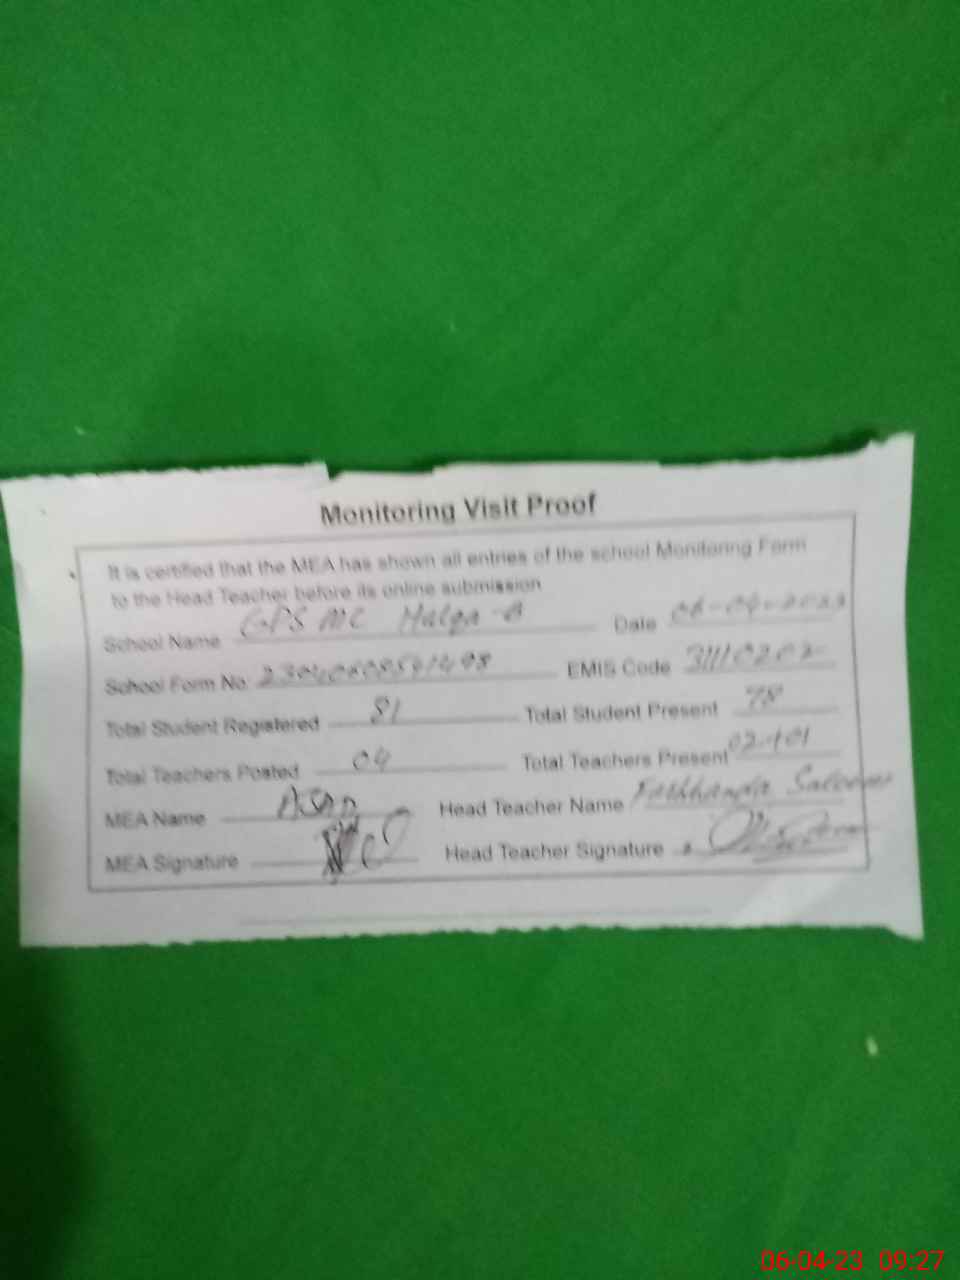 Monitoring Visit Proof
It is certified that the MEA has shown all entries of the school Monitoring Form
to the Head Teacher before its online submission
School Name GPS MC Halqa-B Date 06-04-2023
School Form No. EMIS Code 31110202
Total Student Registered 81 Total Student Present 78
Total Teachers Posted 04 Total Teachers Present 02+01
MEA Name Head Teacher Name Farkhanda Saleem
MEA Signature Head Teacher Signature
06-04-23 09:27